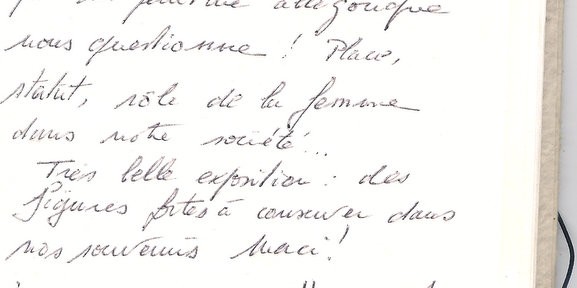 allégorique
nous questionne ! Place,
statut, rôle de la femme
dans notre société...
Très belle exposition : des
figures fortes à conserver dans
nos souvenirs Merci !